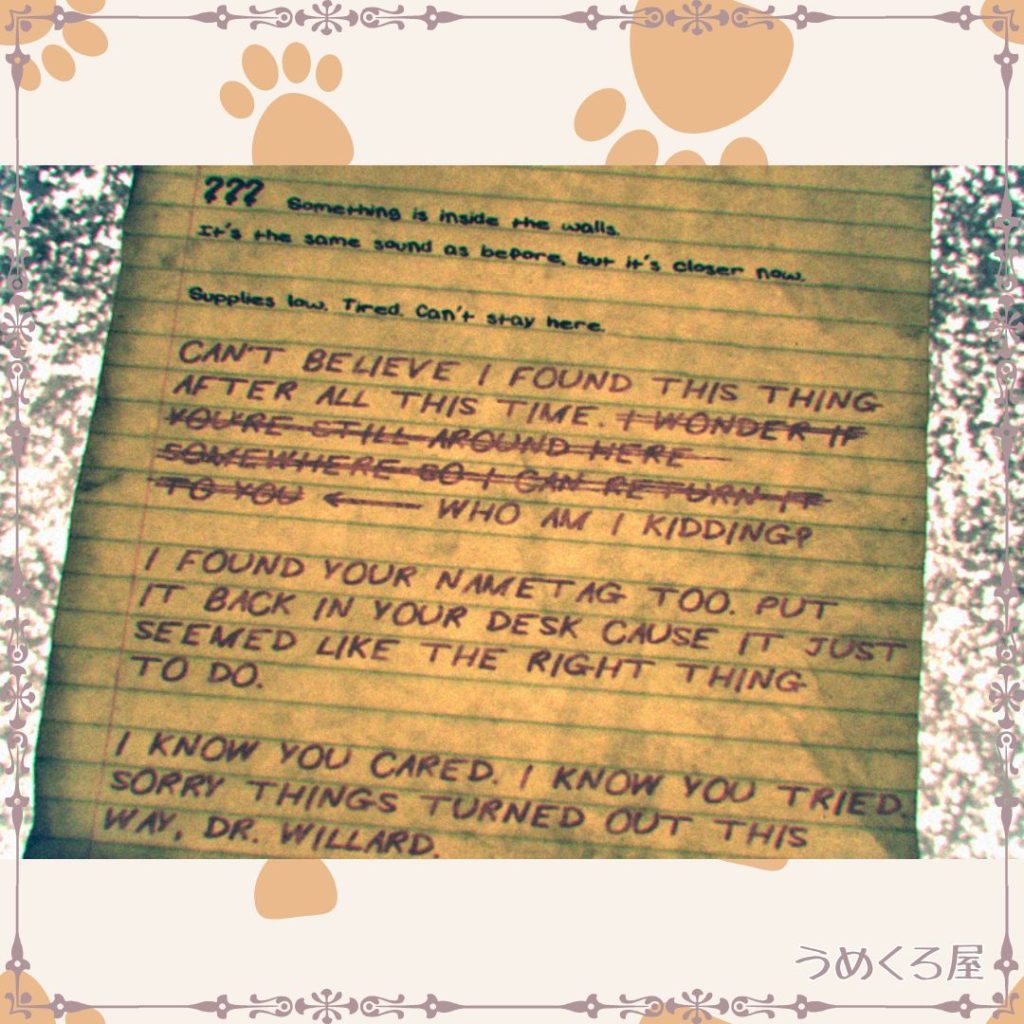 ??? Something is inside the walls.
It's the same sound as before, but it's closer now.
Supplies low. Tired. Can't stay here.
CAN'T BELIEVE I FOUND THIS THING
AFTER ALL THIS TIME. I WONDER IF
YOU'RE STILL AROUND HERE
SOMEWHERE SO I CAN RETURN IT
TO YOU ← WHO AM I KIDDING?
I FOUND YOUR NAMETAG TOO. PUT
IT BACK IN YOUR DESK CAUSE IT JUST
SEEMED LIKE THE RIGHT THING
TO DO.
I KNOW YOU CARED. I KNOW YOU TRIED.
SORRY THINGS TURNED OUT THIS
WAY, DR. WILLARD.
うめくろ屋